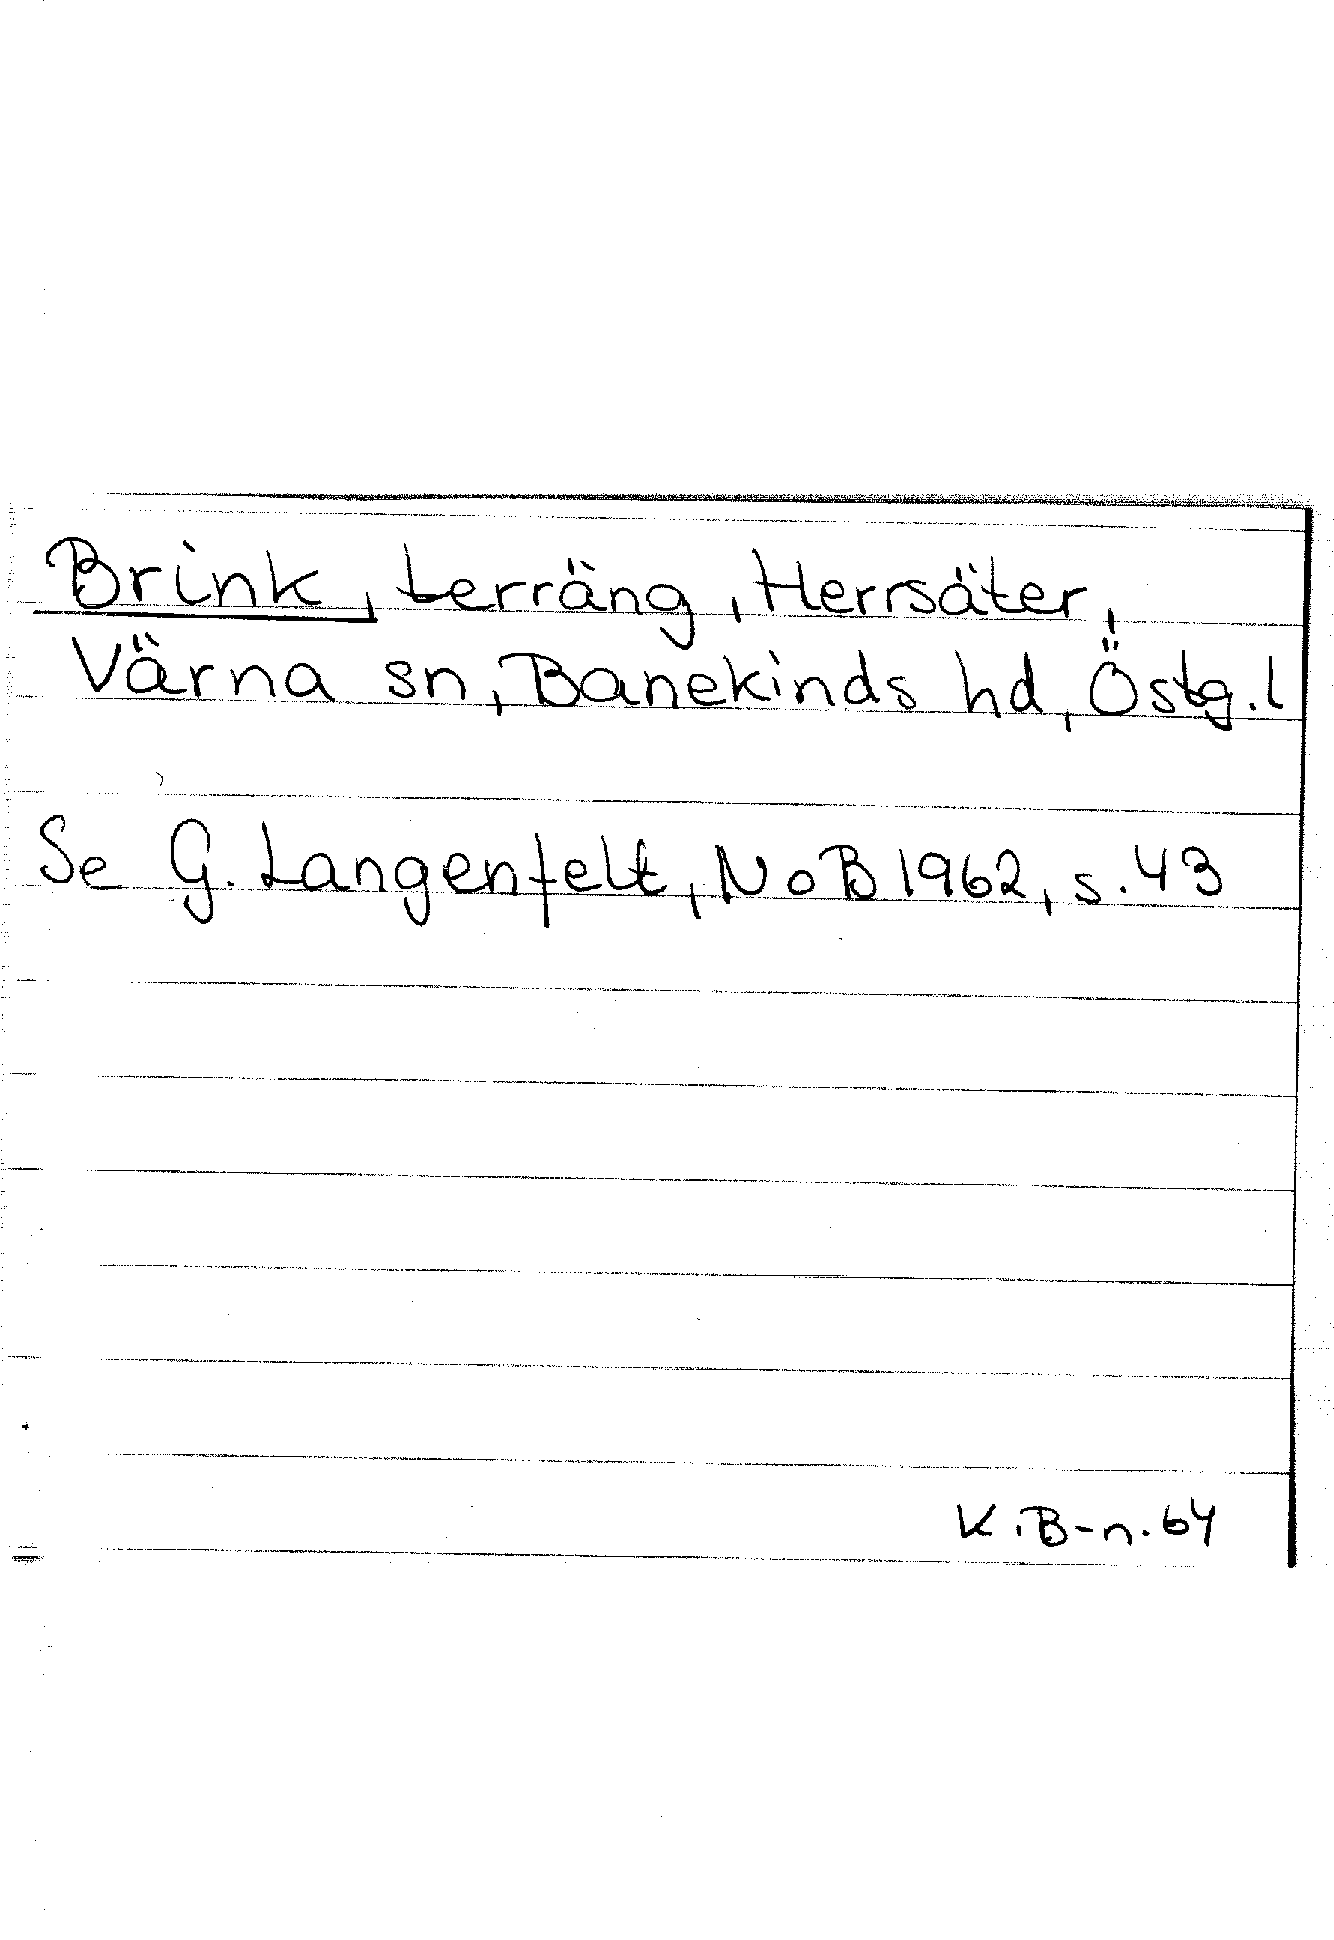 Brink, terräng, Herrsäter,
Värna sn, Banekinds hd, Östg.l
Se G. Langenfelt, NoB 1962, s. 43
K.B-n. 64